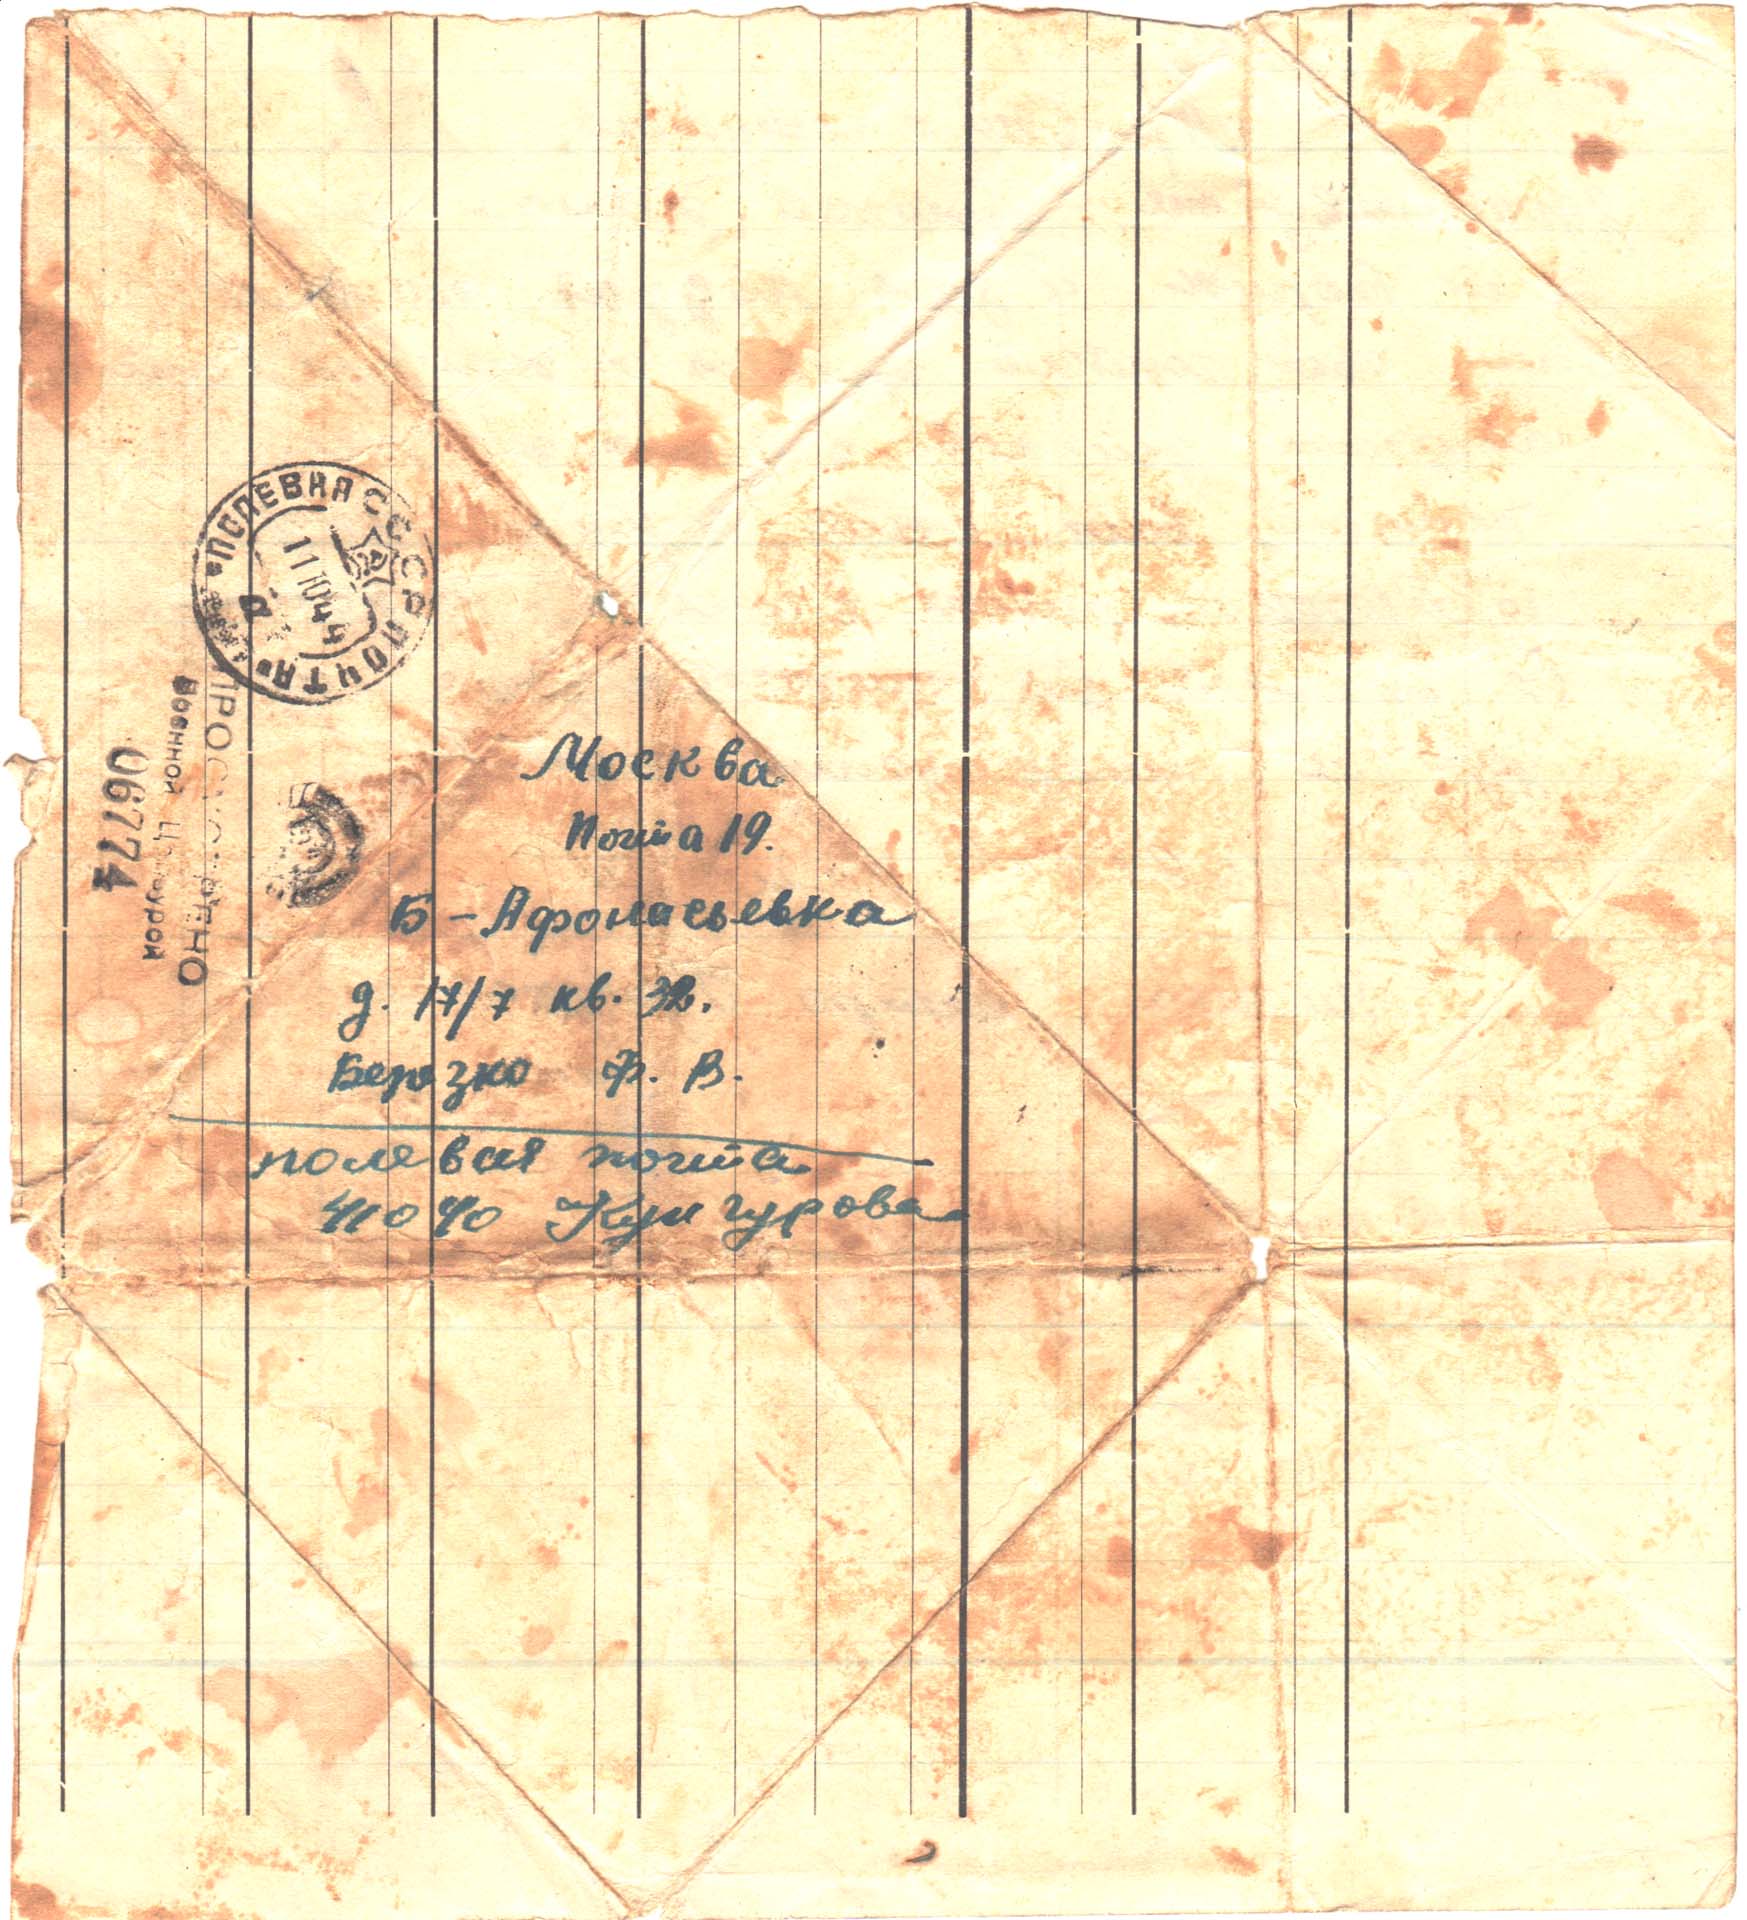 ПОЛЕВАЯ ПОЧТА
СССР
11 10 44
ПРОСМОТРЕНО
Военной Цензурой
06774
Москва
Почта 19.
Б-Афонасьевка
д. 17/7 кв. 32.
Березко Ф. В.
полевая почта
41040 Кунгурова